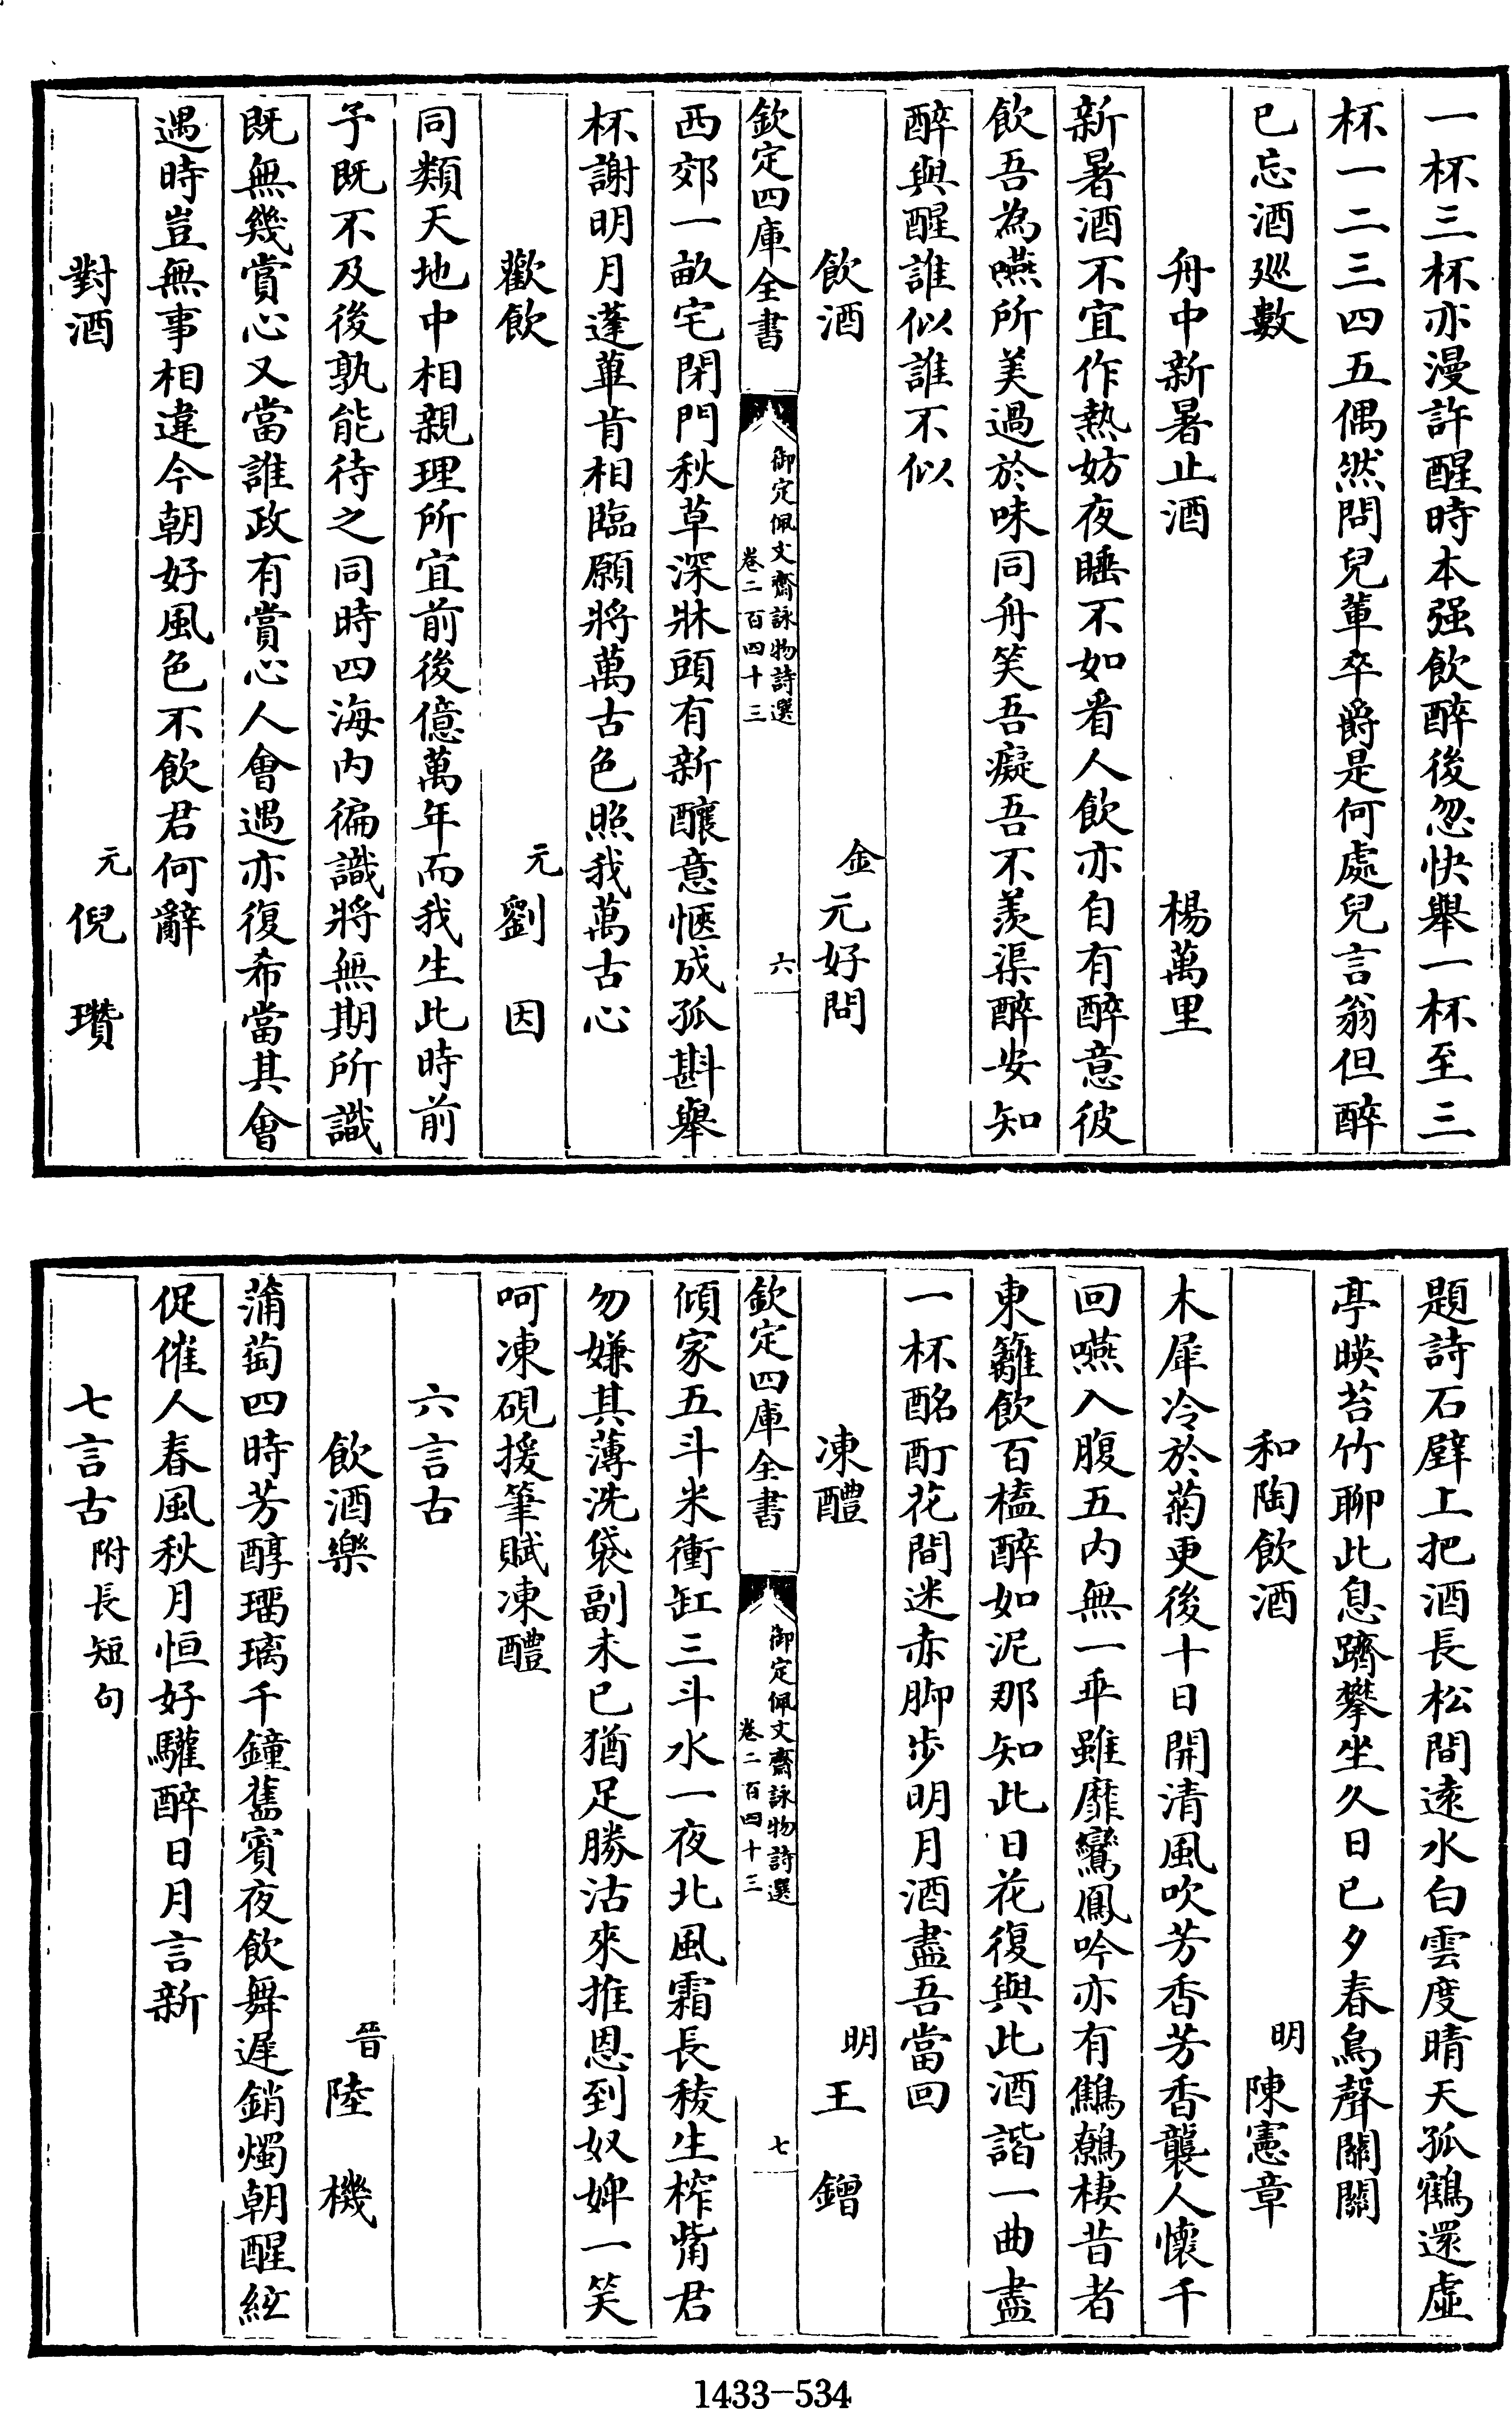 一杯三杯亦漫許醒時本强飲醉後忽快舉一杯至三
杯一二三四五偶然問兒軰卒爵是何處兒言翁但醉
已忘酒廵數
舟中新暑止酒 楊萬里
新暑酒不宜作熱妨夜睡不如看人飲亦自有醉意彼
飲吾為嚥所美過於味同舟笑吾癡吾不羨渠醉安知
醉與醒誰似誰不似
飲酒 金 元好問
欽定四庫全書 御定佩文齋詠物詩選 卷二百四十三 六
西郊一畝宅閉門秋草深牀頭有新釀意愜成孤斟舉
杯謝明月蓬蓽肯相臨願將萬古色照我萬古心
歡飲 元 劉因
同類天地中相親理所宜前後億萬年而我生此時前
予既不及後孰能待之同時四海内徧識將無期所識
既無幾賞心又當誰政有賞心人會遇亦復希當其會
遇時豈無事相違今朝好風色不飲君何辭
對酒 元 倪瓚
題詩石壁上把酒長松間遠水白雲度晴天孤鶴還虛
亭暎苔竹聊此息躋攀坐久日已夕春鳥聲關關
和陶飲酒 明 陳憲章
木犀冷於菊更後十日開清風吹芳香芳香襲人懷千
回嚥入腹五内無一乖雖靡鸞鳳吟亦有鷦鷯棲昔者
東籬飲百榼醉如泥那知此日花復與此酒諧一曲盡
一杯酩酊花間迷赤脚步明月酒盡吾當回
凍醴 明 王鏳
欽定四庫全書 御定佩文齋詠物詩選 卷二百四十三 七
傾家五斗米衝缸三斗水一夜北風霜長稜生榨觜君
勿嫌其薄洗袋副未已猶足勝沽來推恩到奴婢一笑
呵凍硯援筆賦凍醴
六言古
飲酒樂 晉 陸機
蒲萄四時芳醇瑠璃千鐘舊賓夜飲舞遲銷燭朝醒絃
促催人春風秋月恒好驩醉日月言新
七言古 附長短句
1433-534